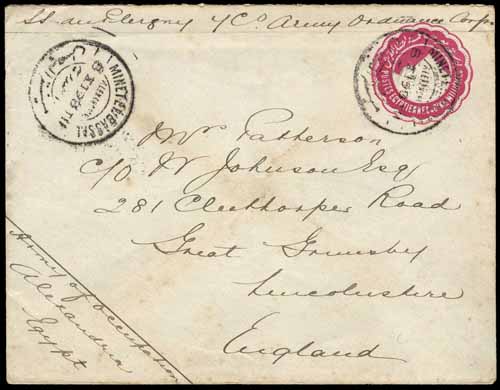 Army Ordnance Corps
MINET EL BASSAL
6 XI 98
POSTES EGYPTIENNES
MINET EL
Mrs Patterson
C/O W Johnson Esq
281 Cleethorpes Road
Great Grimsby
Lincolnshire
England
Army of occupation
Alexandria
Egypt